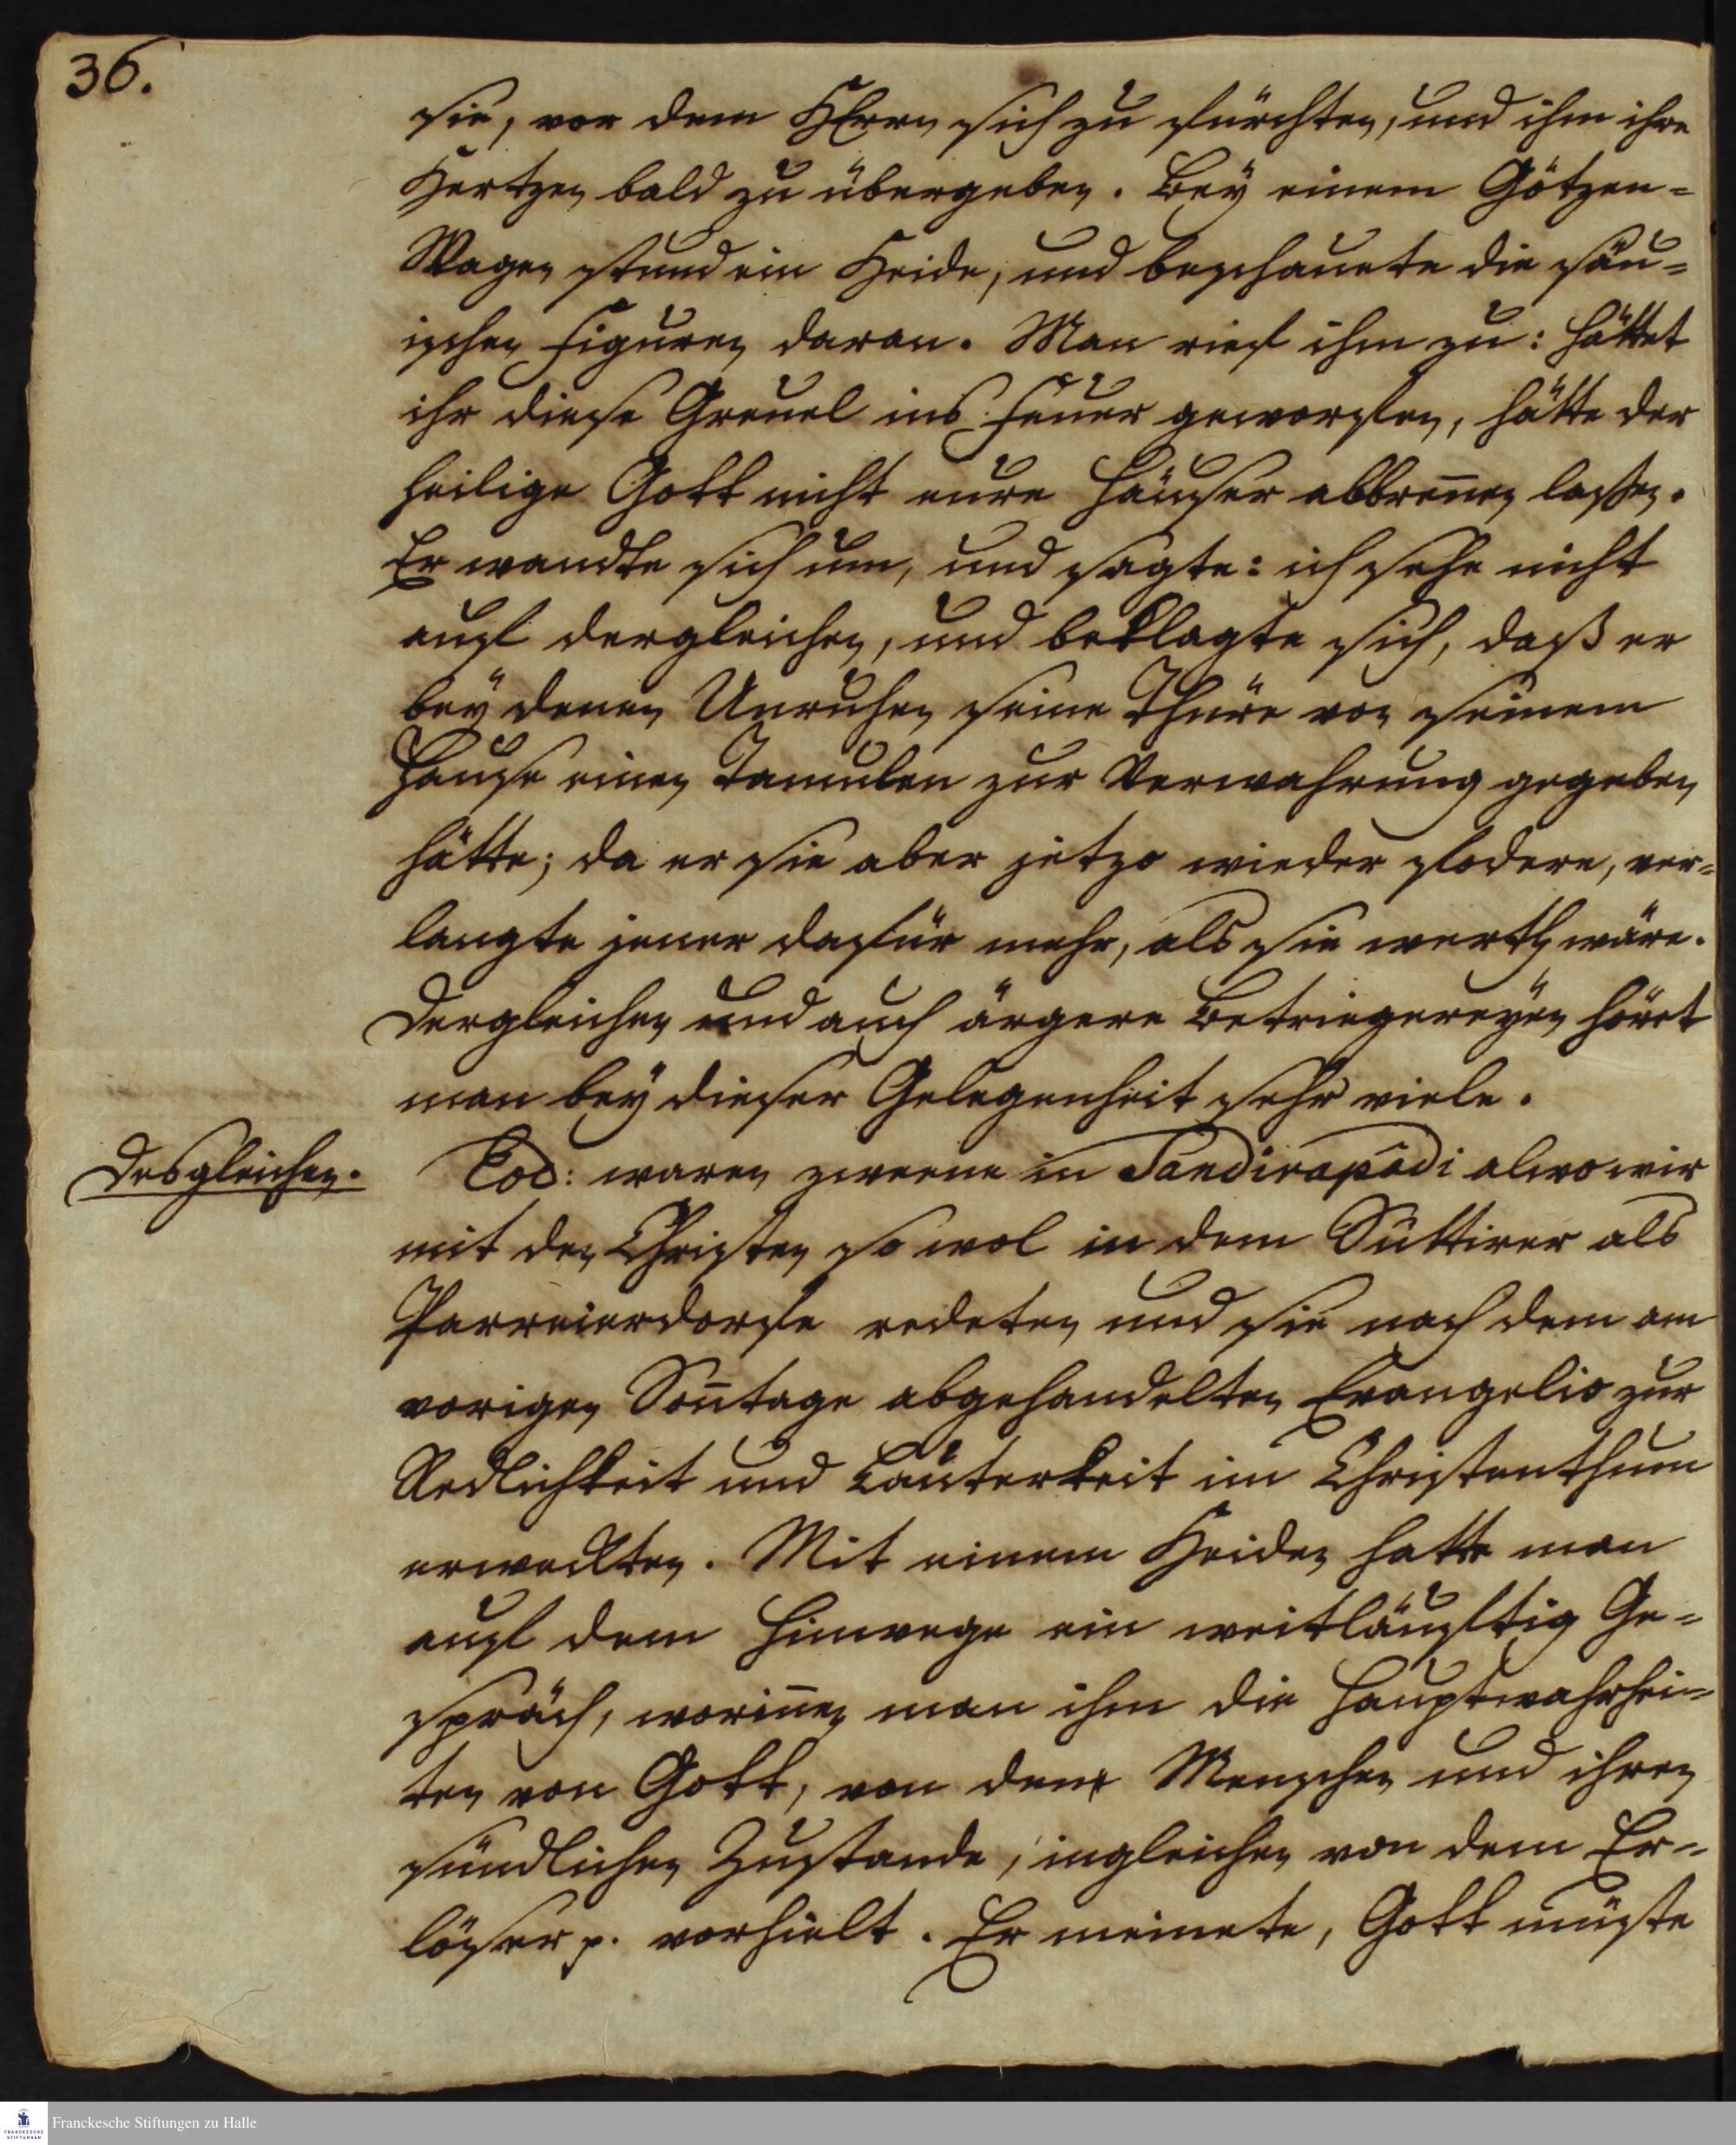 36.
sie, vor dem HErrn sich zu fürchten, und ihm ihre
Hertzen bald zu übergeben. Bey einem Götzen=
Wagen stund ein Heide, und beschauete die säu=
ischen Figuren daran. Man rief ihm zu: hättet
ihr diese Greuel ins Feuer geworfen, hätte der
heilige Gott nicht eure Häuser abbren̄en laßen.
Er wandte sich um, und sagte: ich sehe nicht
auf dergleichen, und beklagte sich, daß er
bey denen Unruhen seine Thüre von seinem
Hause einen Tamulen zur Verwahrung gegeben
hätte; da er sie aber jetzo wieder fodere, ver=
langte jener dafür mehr, als sie werth wäre.
Dergleichen und auch ärgere Betriegereyen höret
man bey dieser Gelegenheit sehr viele.
Desgleichen.
Eod: waren zweene in Sandirapâdi alwo wir
mit den Christen so wol in dem Suttirer als
Parreierdorfe redeten und sie nach dem am
vorigen Son̄tage abgehandelten Evangelio zur
Redlichkeit und Lauterkeit im Christenthum
erweckten. Mit einem Heiden hatte man
auf dem Hinwege ein weitläuftig Ge=
spräch, worin̄en man ihm die Hauptwahrhei=
ten von Gott, von dem Menschen und ihren
sündlichen Zustande, ingleichen von dem Er=
löser p. vorhielt. Er meinete, Gott müste
Franckesche Stiftungen zu Halle
FRANCKESCHE
STIFTUNGEN